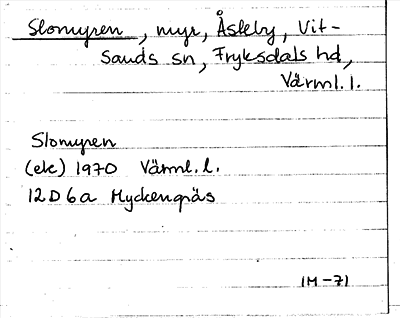 Slomyren, myr, Åsteby, Vit-
sands sn, Fryksdals hd,
Värml. l.
Slomyren
(ek) 1970 Värml. l.
12D6a Myckengräs
IM-71